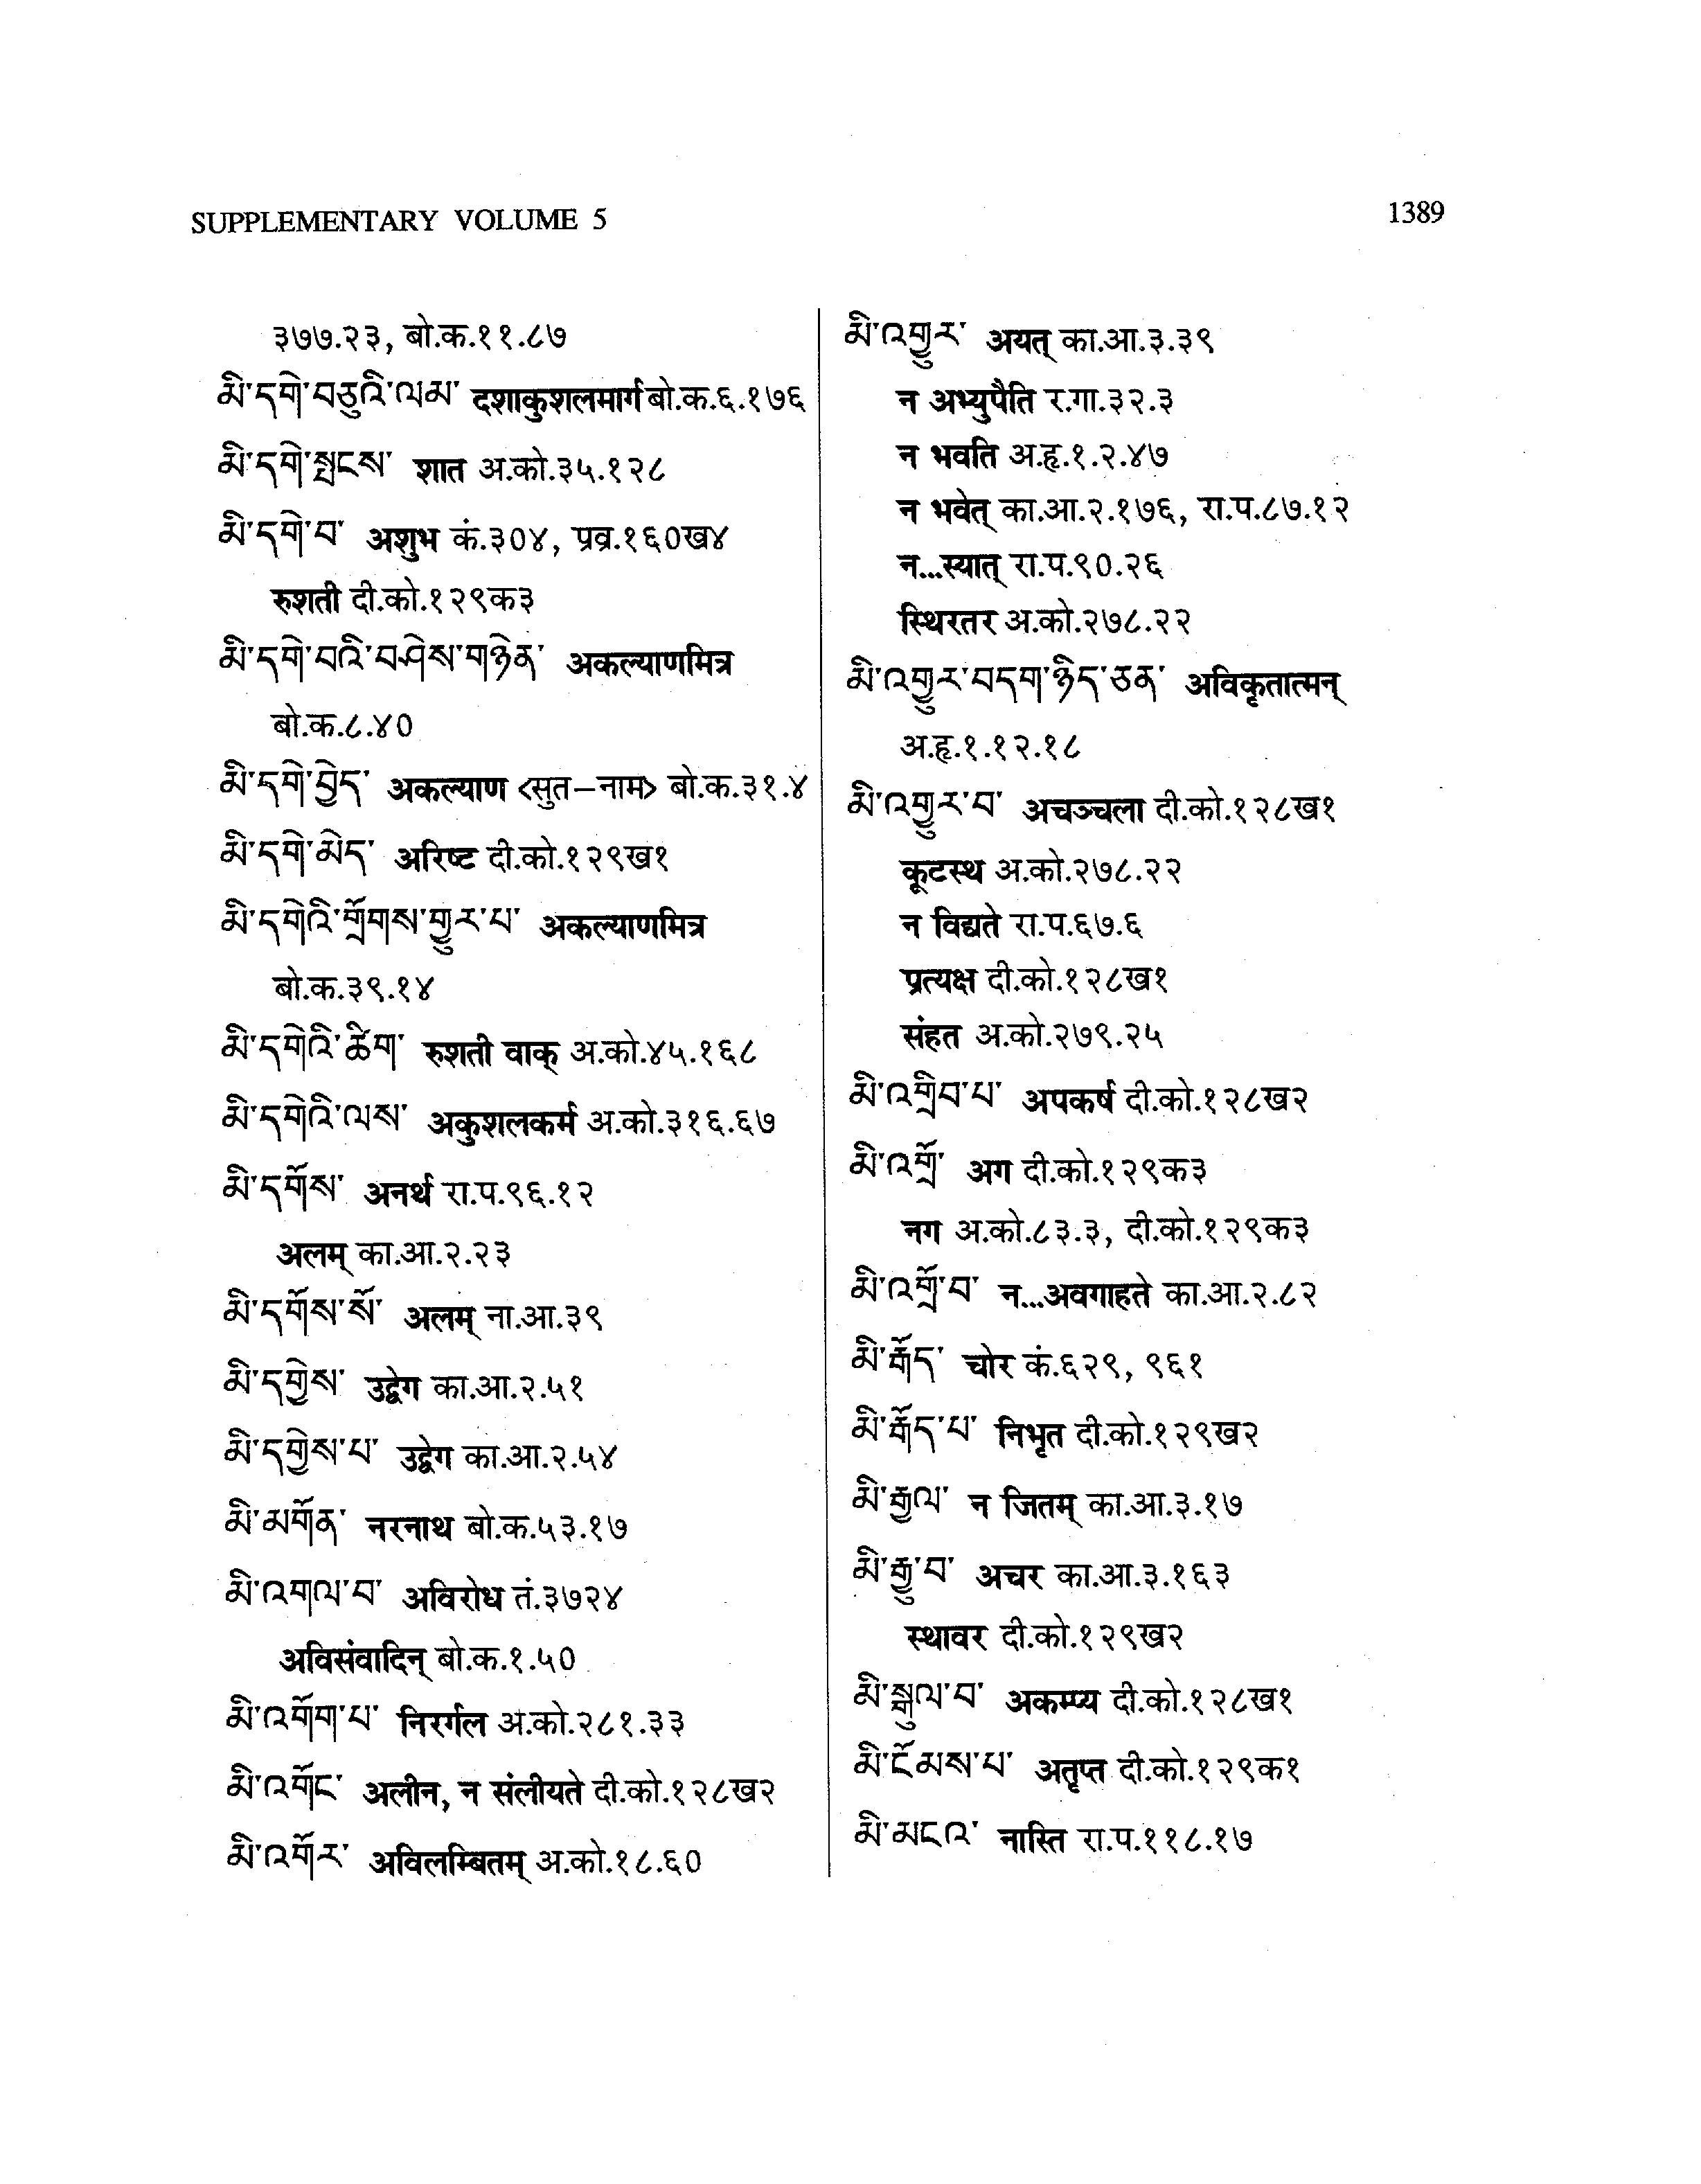 SUPPLEMENTARY VOLUME 5
1389
३७७.२३, बो.क.११.८७
མི་དགེ་བཅུའི་ལམ་ दशाकुशलमार्ग बो.क.६.१७६
མི་དགེ་སྤངས་ शात अ.को.३५.१२८
མི་དགེ་བ་ अशुभ कं.३०४, प्रव्र.१६०ख४
रुशती दी.को.१२९क३
མི་དགེ་བའི་བཤེས་གཉེན་ अकल्याणमित्र
बो.क.८.४०
མི་དགེ་བྱེད་ अकल्याण <सुत–नाम> बो.क.३१.४
མི་དགེ་མེད་ अरिष्ट दी.को.१२९ख१
མི་དགེའི་གྲོགས་གྱུར་པ་ अकल्याणमित्र
बो.क.३९.१४
མི་དགེའི་ཚིག་ रुशती वाक् अ.को.४५.१६८
མི་དགེའི་ལས་ अकुशलकर्म अ.को.३१६.६७
མི་དགོས་ अनर्थ रा.प.९६.१२
अलम् का.आ.२.२३
མི་དགོས་སོ་ अलम् ना.आ.३९
མི་དགྱེས་ उद्वेग का.आ.२.५१
མི་དགྱེས་པ་ उद्वेग का.आ.२.५४
མི་མགོན་ नरनाथ बो.क.५३.१७
མི་འགལ་བ་ अविरोध तं.३७२४
अविसंवादिन् बो.क.१.५०
མི་འགོག་པ་ निरर्गल अ.को.२८१.३३
མི་འགོང་ अलीन, न संलीयते दी.को.१२८ख२
མི་འགོར་ अविलम्बितम् अ.को.१८.६०
མི་འགྱུར་ अयत् का.आ.३.३९
न अभ्युपैति र.गा.३२.३
न भवति अ.हृ.१.२.४७
न भवेत् का.आ.२.१७६, रा.प.८७.१२
न...स्यात् रा.प.९०.२६
स्थिरतर अ.को.२७८.२२
མི་འགྱུར་བདག་ཉིད་ཅན་ अविकृतात्मन्
अ.हृ.१.१२.१८
མི་འགྱུར་བ་ अचञ्चला दी.को.१२८ख१
कूटस्थ अ.को.२७८.२२
न विद्यते रा.प.६७.६
प्रत्यक्ष दी.को.१२८ख१
संहत अ.को.२७९.२५
མི་འགྲིབ་པ་ अपकर्ष दी.को.१२८ख२
མི་འགྲོ་ अग दी.को.१२९क३
नग अ.को.८३.३, दी.को.१२९क३
མི་འགྲོ་བ་ न...अवगाहते का.आ.२.८२
མི་རྒོད་ चोर कं.६२९, ९६१
མི་རྒོད་པ་ निभृत दी.को.१२९ख२
མི་རྒྱལ་ न जितम् का.आ.३.१७
མི་རྒྱུ་བ་ अचर का.आ.३.१६३
स्थावर दी.को.१२९ख२
མི་སྒུལ་བ་ अकम्प्य दी.को.१२८ख१
མི་ངོམས་པ་ अतृप्त दी.को.१२९क१
མི་མངའ་ नास्ति रा.प.११८.१७